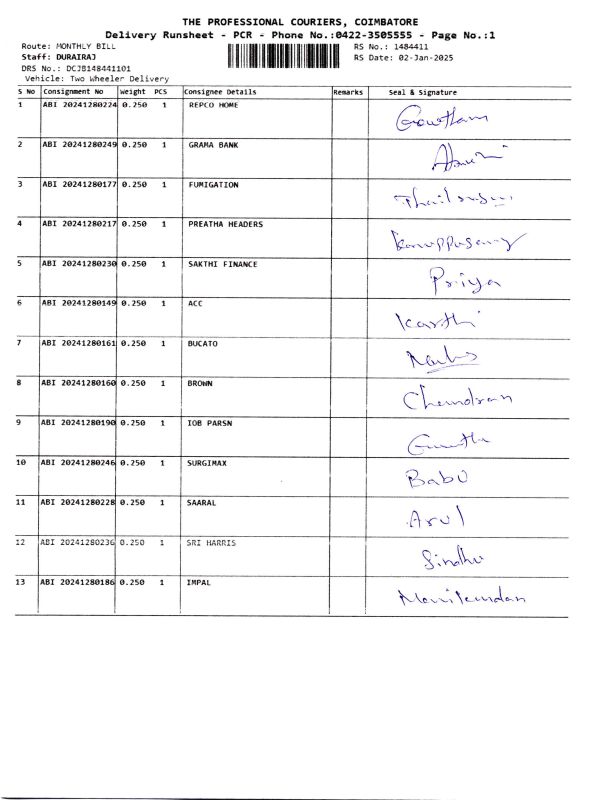 THE PROFESSIONAL COURIERS, COIMBATORE
Delivery Runsheet - PCR - Phone No.:0422-3505555 - Page No.:1
Route: MONTHLY BILL RS No.: 1484411
Staff: DURAIRAJ RS Date: 02-Jan-2025
DRS No.: DCJB148441101
Vehicle: Two Wheeler Delivery
S No Consignment No Weight PCS Consignee Details Remarks Seal & Signature
1 ABI 20241280224 0.250 1 REPCO HOME Gowtham
2 ABI 20241280249 0.250 1 GRAMA BANK
3 ABI 20241280177 0.250 1 FUMIGATION
4 ABI 20241280217 0.250 1 PREATHA HEADERS Karuppusamy
5 ABI 20241280230 0.250 1 SAKTHI FINANCE Priya
6 ABI 20241280149 0.250 1 ACC Karthi
7 ABI 20241280161 0.250 1 BUCATO
8 ABI 20241280160 0.250 1 BROWN Chandran
9 ABI 20241280190 0.250 1 IOB PARSN
10 ABI 20241280246 0.250 1 SURGIMAX Babu
11 ABI 20241280228 0.250 1 SAARAL Arul
12 ABI 20241280236 0.250 1 SRI HARRIS Sindhu
13 ABI 20241280186 0.250 1 IMPAL Manikandan